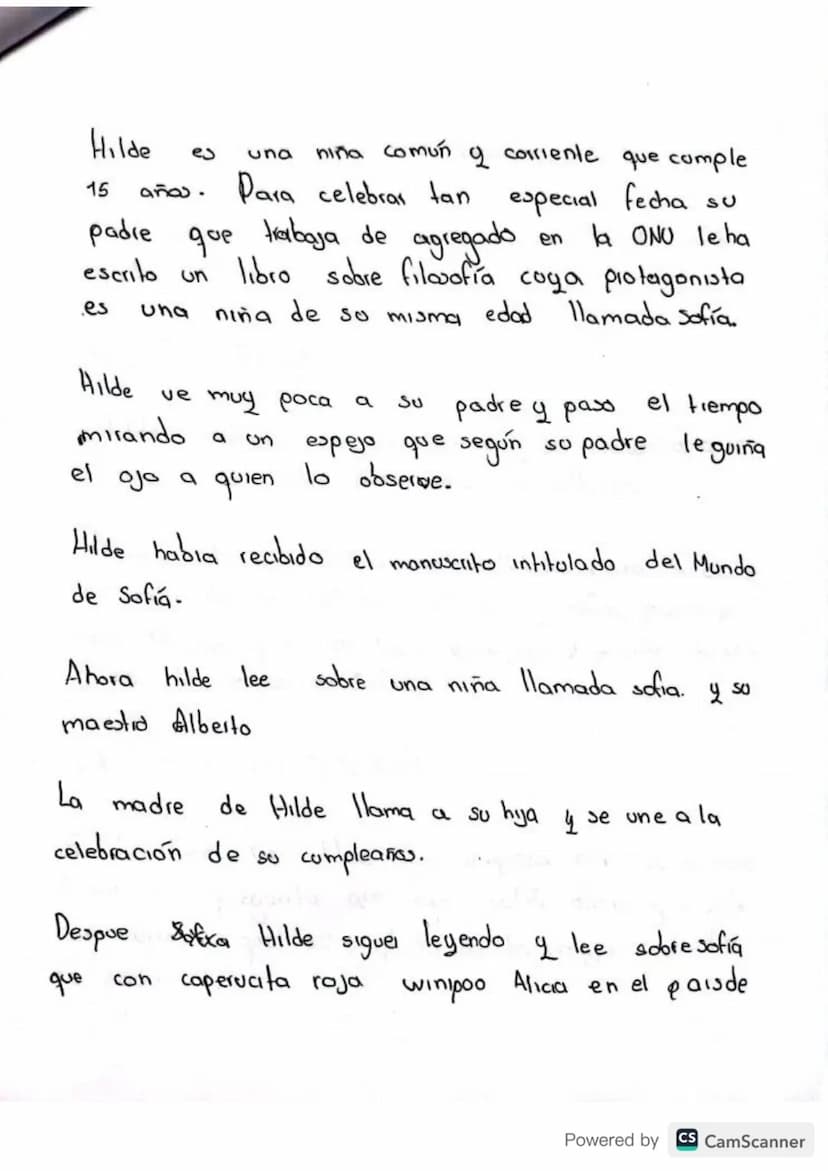 Hilde es una niña común y corriente que cumple
15 años. Para celebrar tan especial fecha su
padre que trabaja de agregado en la ONU le ha
escrito un libro sobre filosofía cuya protagonista
es una niña de su misma edad llamada Sofía.
Hilde ve muy poca a su padre y paso el tiempo
mirando a un espejo que según su padre le guiña
el ojo a quien lo observe.
Hilde habia recibido el manuscrito intitulado del Mundo
de Sofía.
Ahora hilde lee sobre una niña llamada sofia. y su
maestro Alberto
La madre de Hilde llama a su hija y se une a la
celebración de su cumpleaños.
Despue Hilde siguei leyendo y lee sobre sofía
que con caperucita roja winipoo Alicia en el pais de
Powered by CS CamScanner